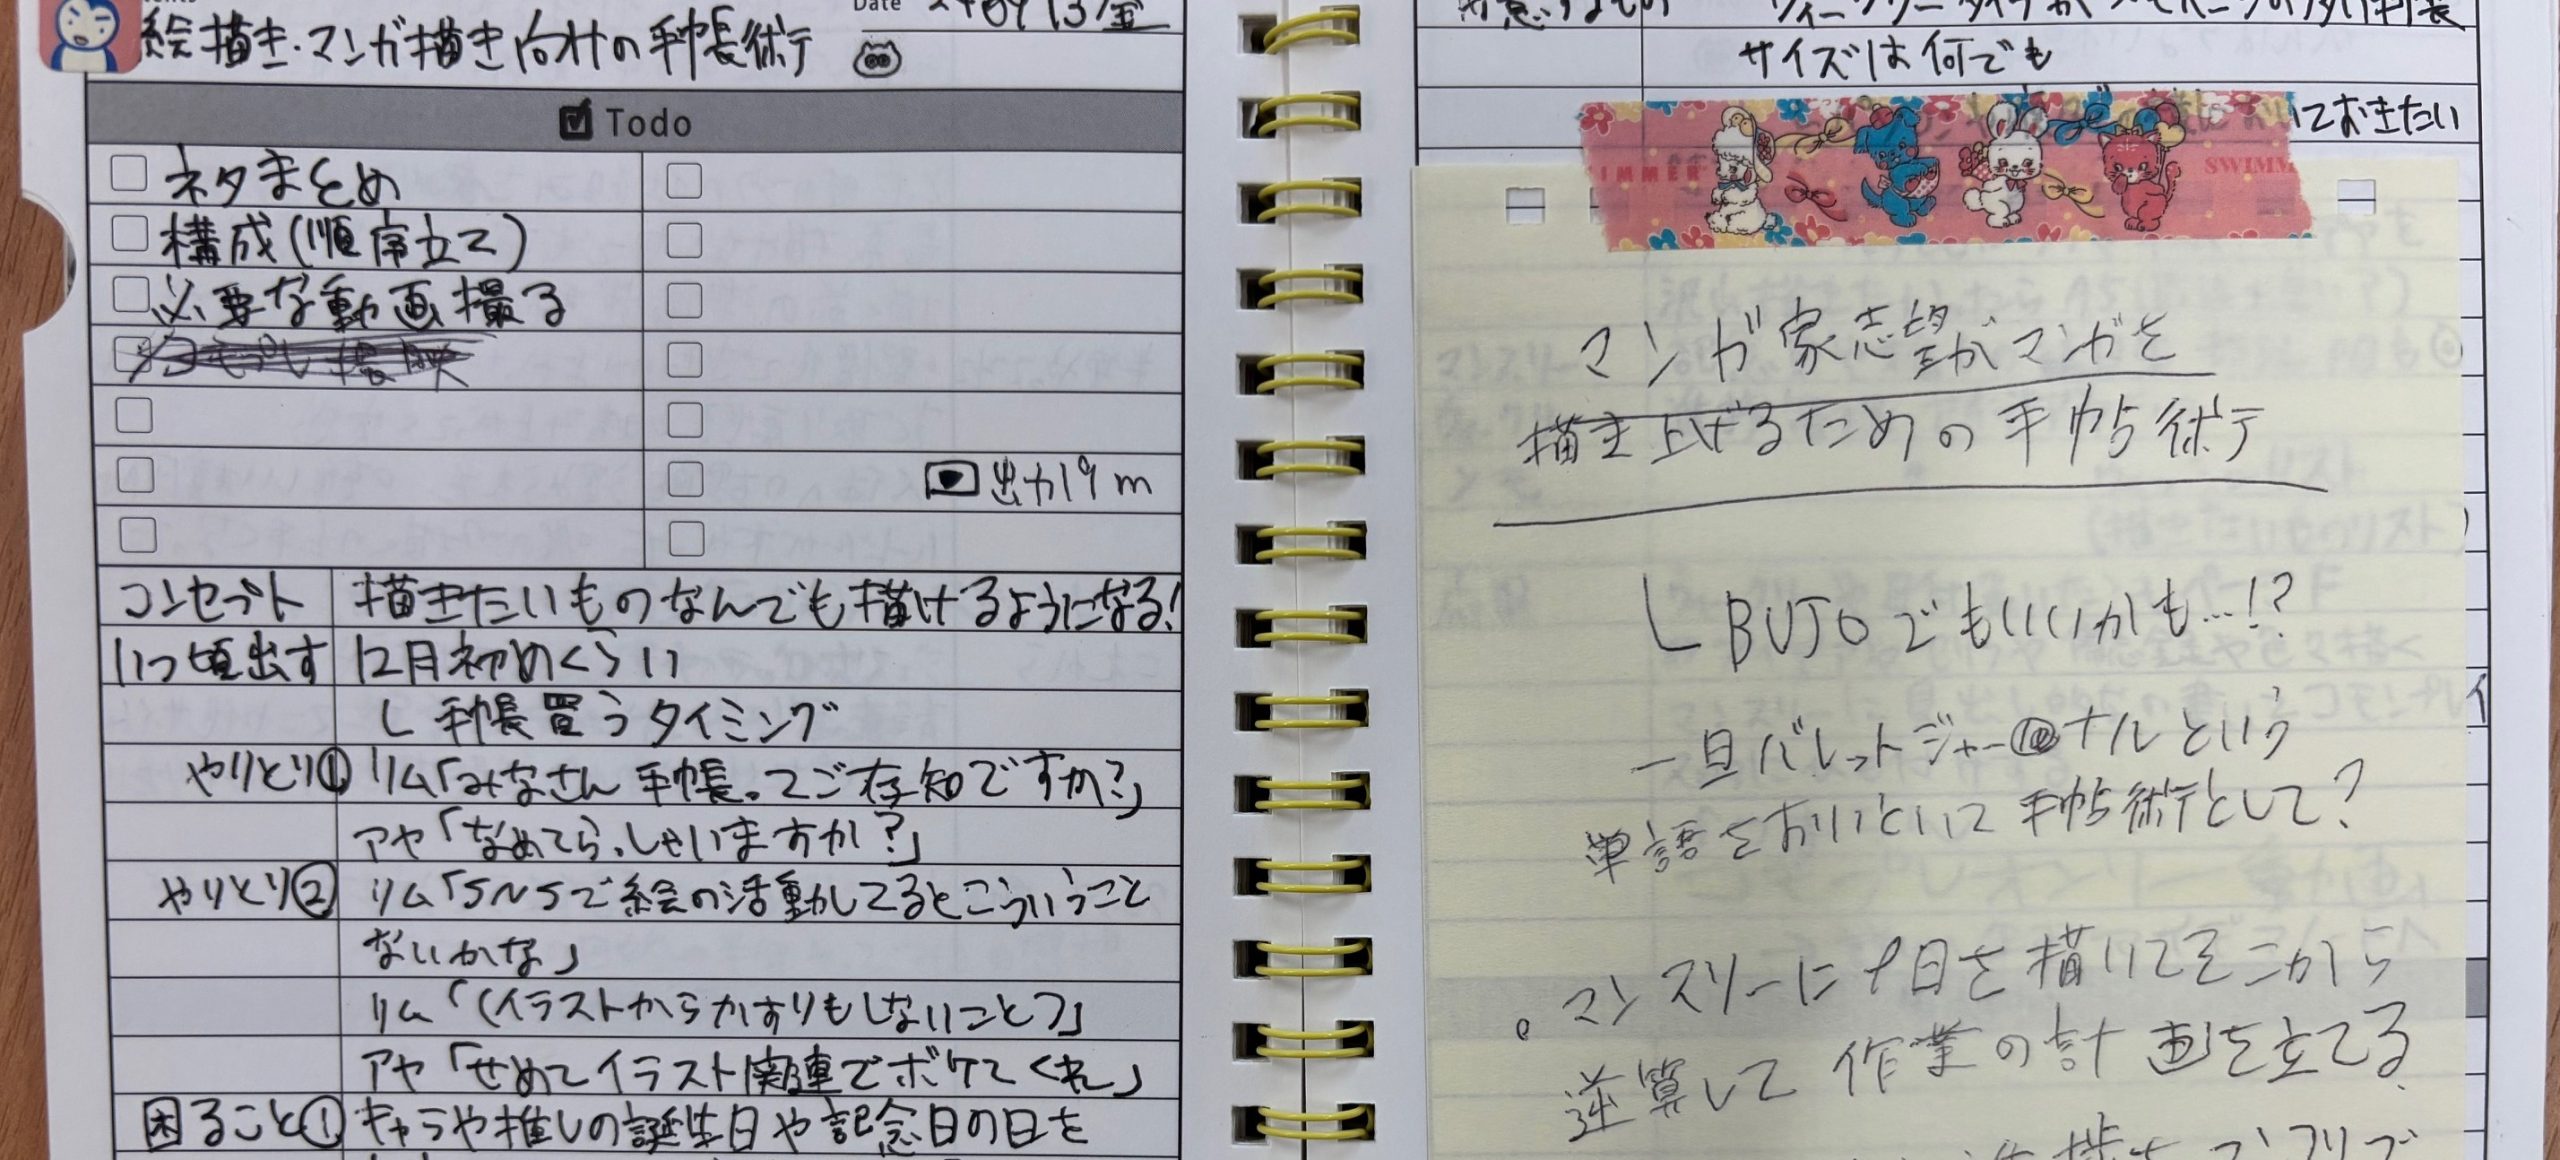 Date
絵描き・マンガ描き向けの手帳術
Todo
ネタまとめ
構成(順序立て)
必要な動画撮る
出力19m
コンセプト 描きたいものなんでも描けるようになる!
いつ頃出す 12月初めくらい
し 手帳買うタイミング
やりとり① リム「みなさん手帳ってご存知ですか?」
アヤ「なめてらっしゃいますか?」
やりとり② リム「SNSで絵の活動してるとこういうこと
ないかな」
リム「(イラストからかすりもしないこと)」
アヤ「せめてイラスト関連でボケてくれ」
困ること① キャラや推しの誕生日や記念日の日を
サイズは何でも
ておきたい
SWIMM
マンガ家志望がマンガを
描き上げるための手帖術
し BUJOでもいいかも…!?
一旦バレットジャーナルという
単語をおいといて手帖術として?
。マンスリーに〆日を描いてそこから
逆算して作業の計画を立てる